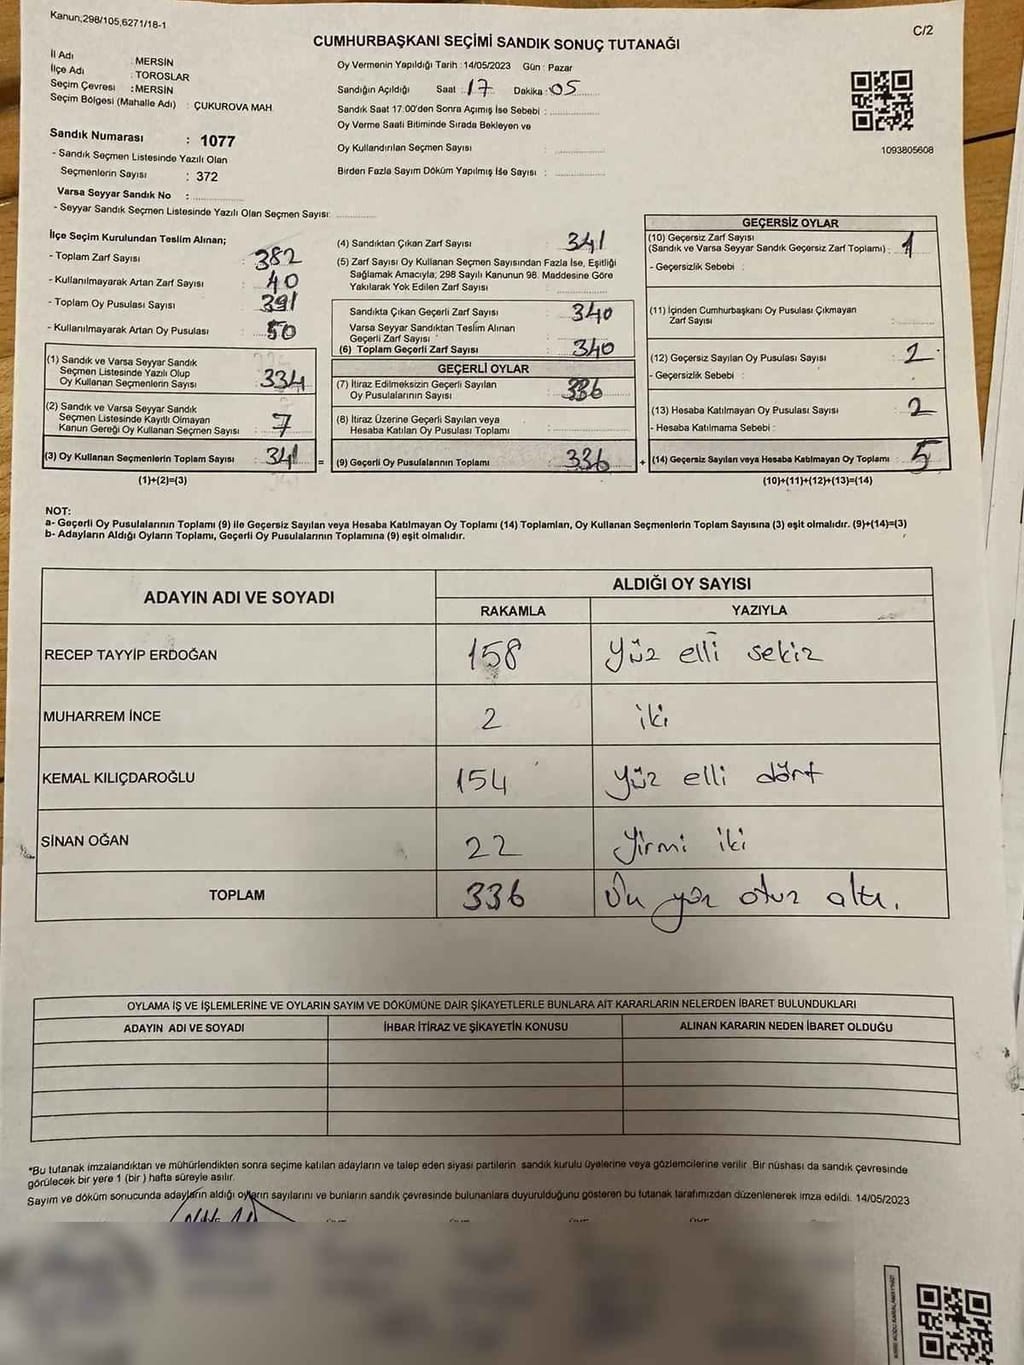 Kanun,298/105,6271/18-1
C/2
CUMHURBAŞKANI SEÇİMİ SANDIK SONUÇ TUTANAĞI
İl Adı : MERSİN
İlçe Adı : TOROSLAR
Seçim Çevresi : MERSİN
Seçim Bölgesi (Mahalle Adı) : ÇUKUROVA MAH.
Sandık Numarası : 1077
- Sandık Seçmen Listesinde Yazılı Olan
Seçmenlerin Sayısı : 372
Varsa Seyyar Sandık No :
- Seyyar Sandık Seçmen Listesinde Yazılı Olan Seçmen Sayısı:
Oy Vermenin Yapıldığı Tarih : 14/05/2023 Gün : Pazar
Sandığın Açıldığı Saat : 17 Dakika : 05
Sandık Saat 17.00'den Sonra Açımış İse Sebebi :
Oy Verme Saati Bitiminde Sırada Bekleyen ve
Oy Kullandırılan Seçmen Sayısı :
Birden Fazla Sayım Döküm Yapılmış İse Sayısı :
1093805608
İlçe Seçim Kurulundan Teslim Alınan;
- Toplam Zarf Sayısı : 382
- Kullanılmayarak Artan Zarf Sayısı : 40
- Toplam Oy Pusulası Sayısı : 391
- Kullanılmayarak Artan Oy Pusulası : 50
(1) Sandık ve Varsa Seyyar Sandık
Seçmen Listesinde Yazılı Olup
Oy Kullanan Seçmenlerin Sayısı : 334
(2) Sandık ve Varsa Seyyar Sandık
Seçmen Listesinde Kayıtlı Olmayan
Kanun Gereği Oy Kullanan Seçmen Sayısı : 7
(3) Oy Kullanan Seçmenlerin Toplam Sayısı : 341 =
(1)+(2)=(3)
(4) Sandıktan Çıkan Zarf Sayısı : 341
(5) Zarf Sayısı Oy Kullanan Seçmen Sayısından Fazla İse, Eşitliği
Sağlamak Amacıyla; 298 Sayılı Kanunun 98. Maddesine Göre
Yakılarak Yok Edilen Zarf Sayısı :
Sandıkta Çıkan Geçerli Zarf Sayısı : 340
Varsa Seyyar Sandıktan Teslim Alınan
Geçerli Zarf Sayısı :
(6) Toplam Geçerli Zarf Sayısı : 340
GEÇERLİ OYLAR
(7) İtiraz Edilmeksizin Geçerli Sayılan
Oy Pusulalarının Sayısı : 336
(8) İtiraz Üzerine Geçerli Sayılan veya
Hesaba Katılan Oy Pusulası Toplamı :
(9) Geçerli Oy Pusulalarının Toplamı : 336 +
GEÇERSİZ OYLAR
(10) Geçersiz Zarf Sayısı
(Sandık ve Varsa Seyyar Sandık Geçersiz Zarf Toplamı) : 1
- Geçersizlik Sebebi :
(11) İçinden Cumhurbaşkanı Oy Pusulası Çıkmayan
Zarf Sayısı :
(12) Geçersiz Sayılan Oy Pusulası Sayısı : 2
- Geçersizlik Sebebi :
(13) Hesaba Katılmayan Oy Pusulası Sayısı : 2
- Hesaba Katılmama Sebebi :
(14) Geçersiz Sayılan veya Hesaba Katılmayan Oy Toplamı : 5
(10)+(11)+(12)+(13)=(14)
NOT:
a- Geçerli Oy Pusulalarının Toplamı (9) ile Geçersiz Sayılan veya Hesaba Katılmayan Oy Toplamı (14) Toplamları, Oy Kullanan Seçmenlerin Toplam Sayısına (3) eşit olmalıdır. (9)+(14)=(3)
b- Adayların Aldığı Oyların Toplamı, Geçerli Oy Pusulalarının Toplamına (9) eşit olmalıdır.
ADAYIN ADI VE SOYADI
ALDIĞI OY SAYISI
RAKAMLA YAZIYLA
RECEP TAYYİP ERDOĞAN 158 yüz elli sekiz
MUHARREM İNCE 2 iki
KEMAL KILIÇDAROĞLU 154 yüz elli dört
SİNAN OĞAN 22 yirmi iki
TOPLAM 336 Üç yüz otuz altı.
OYLAMA İŞ VE İŞLEMLERİNE VE OYLARIN SAYIM VE DÖKÜMÜNE DAİR ŞİKAYETLERLE BUNLARA AİT KARARLARIN NELERDEN İBARET BULUNDUKLARI
ADAYIN ADI VE SOYADI İHBAR İTİRAZ VE ŞİKAYETİN KONUSU ALINAN KARARIN NEDEN İBARET OLDUĞU
*Bu tutanak imzalandıktan ve mühürlendikten sonra seçime katılan adayların ve talep eden siyasi partilerin sandık kurulu üyelerine veya gözlemcilerine verilir. Bir nüshası da sandık çevresinde
görülecek bir yere 1 (bir) hafta süreyle asılır.
Sayım ve döküm sonucunda adayların aldığı oyların sayılarını ve bunların sandık çevresinde bulunanlara duyurulduğunu gösteren bu tutanak tarafımızdan düzenlenerek imza edildi. 14/05/2023